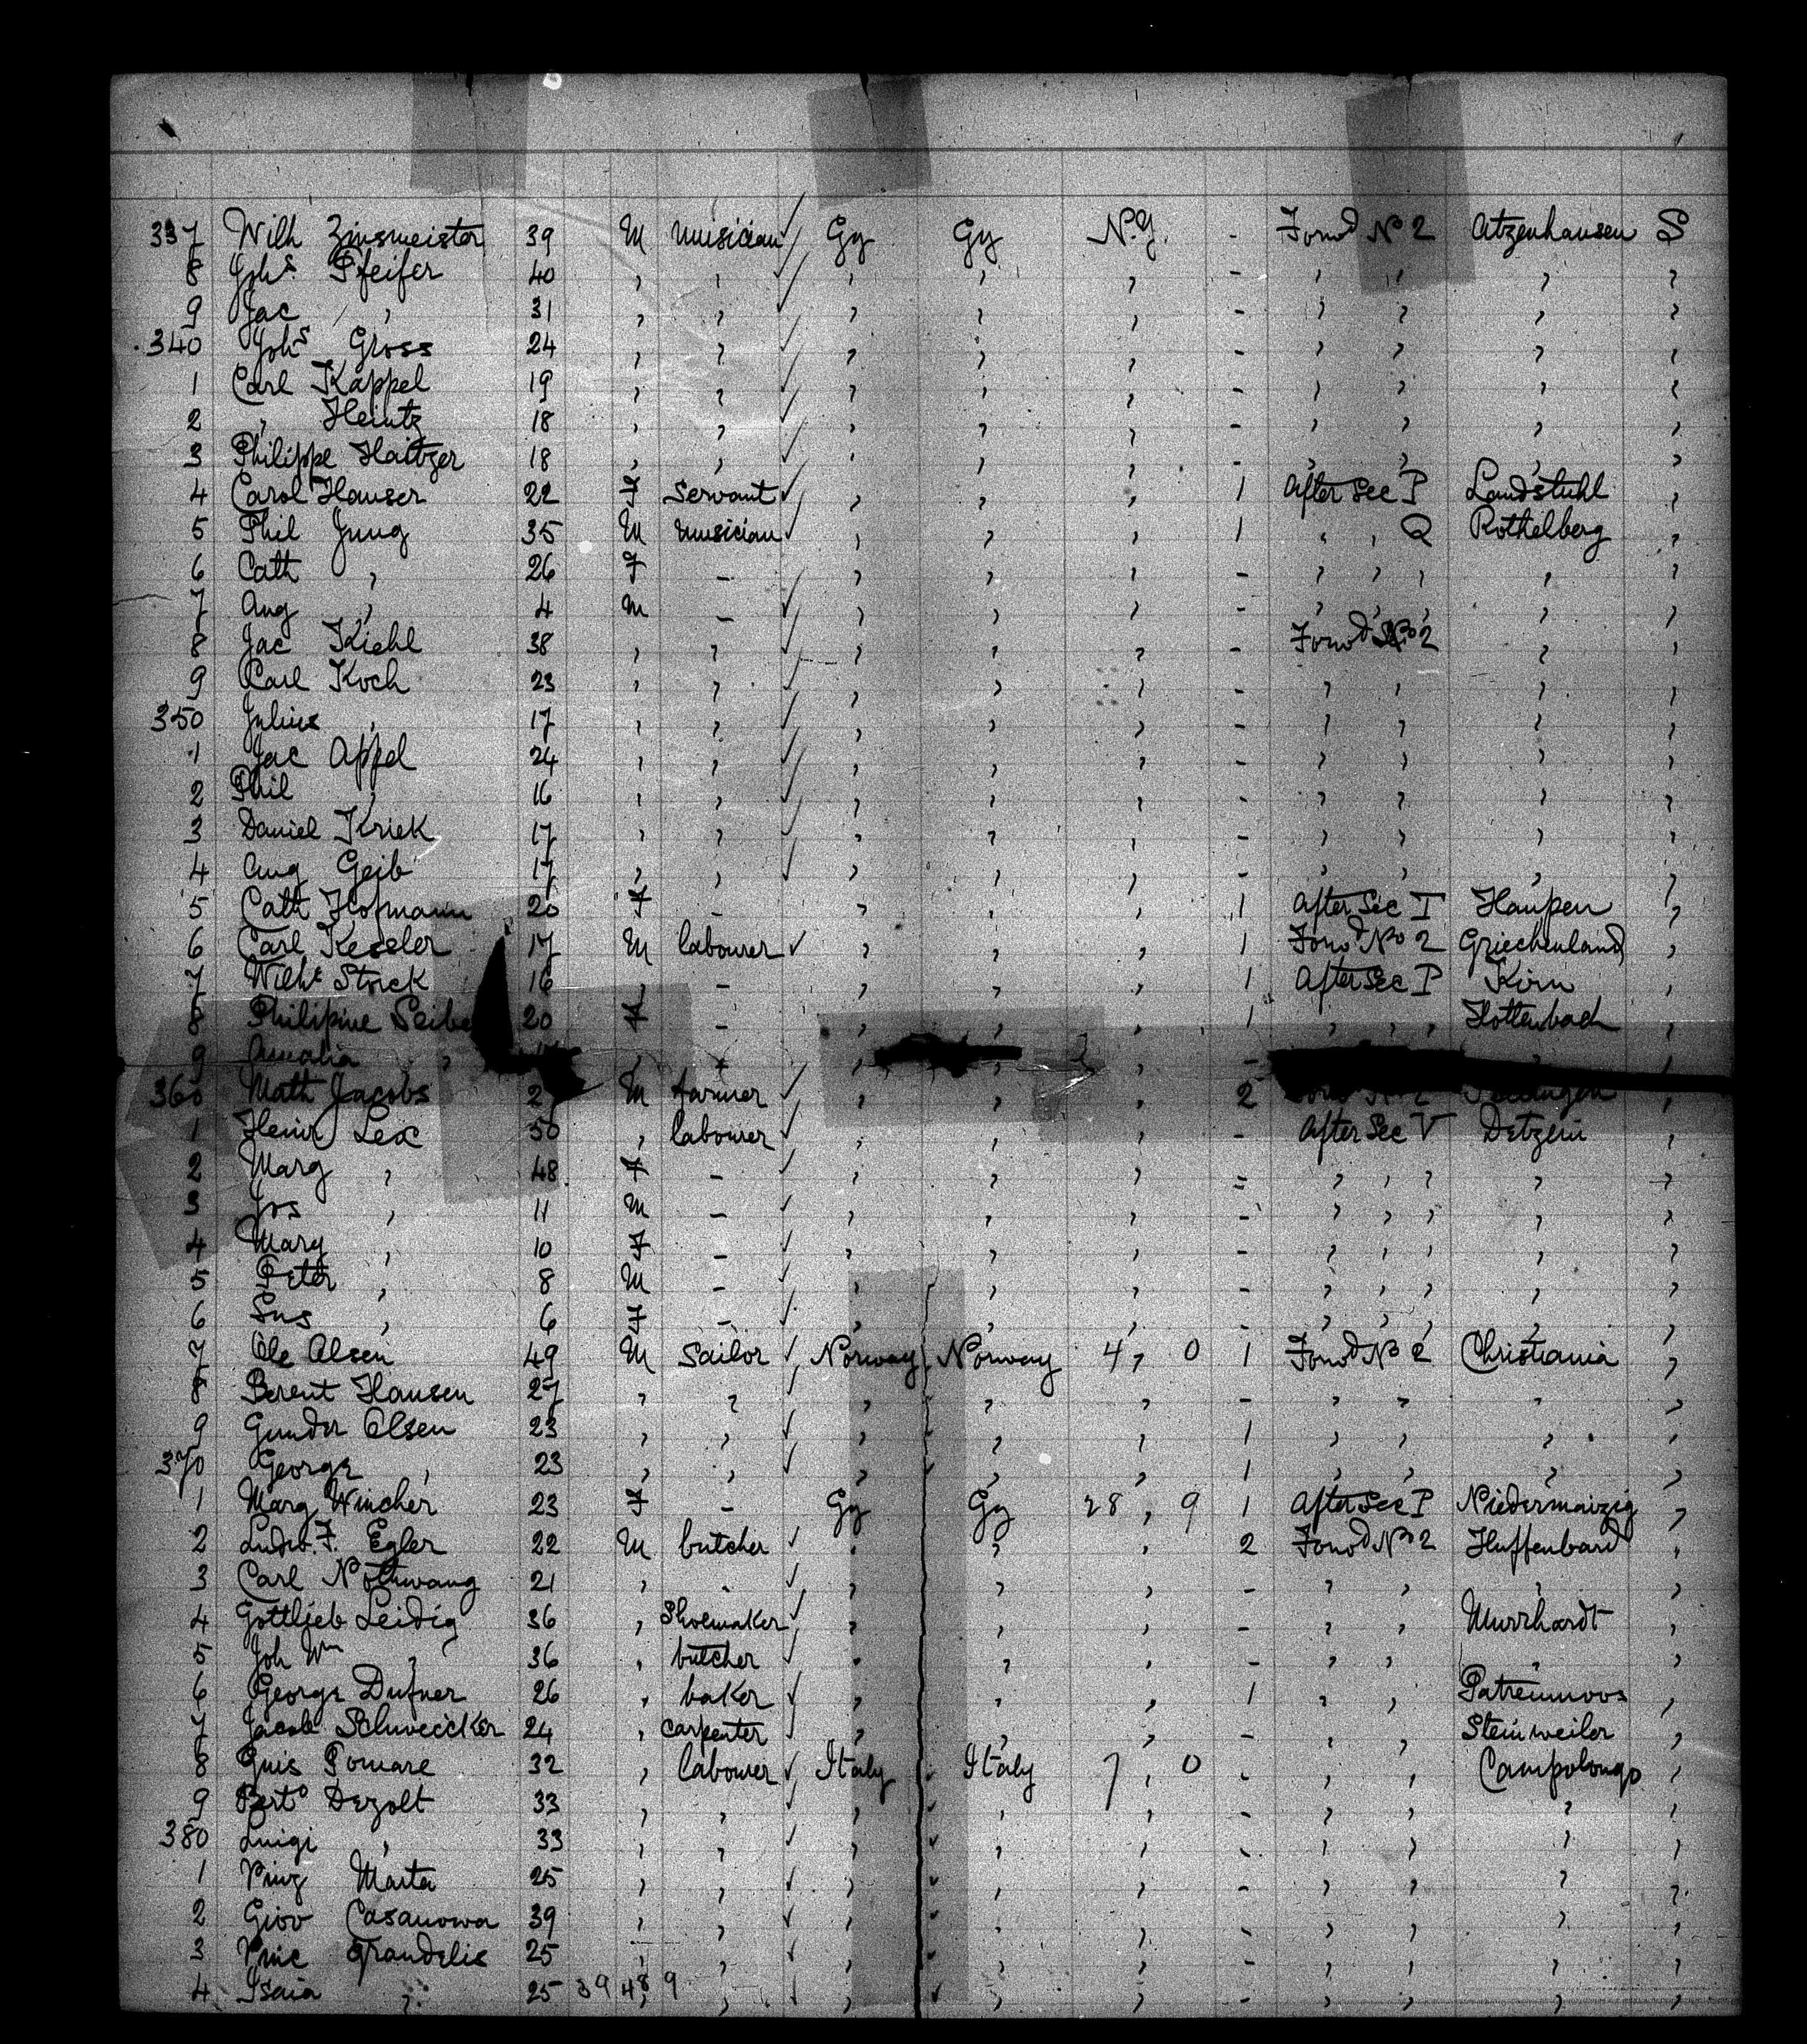 337 Wilh Zinsmeister 39 M musician ✓ Gy Gy N.Y. - Forwd No 2 Atzenhausen S
8 Johs Pfeifer 40 , , ✓ , , , - , , , ,
9 Jac , 31 , , ✓ , , , - , , , ,
340 Johs Gross 24 , , ✓ , , , - , , , ,
1 Carl Kappel 19 , , ✓ , , , - , , , ,
2 , Heintz 18 , , ✓ , , , - , , , ,
3 Philippe Haitzer 18 , , ✓ , , , - , , , ,
4 Carol Hauser 22 F Servant ✓ , , , 1 After Sec P Landstuhl ,
5 Phil Jung 35 M musician ✓ , , , 1 , , Q Rothelberg ,
6 Cath , 26 F - , , , - , , , , ,
7 Aug , 4 M - ✓ , , , - , , , , ,
8 Jac Kiehl 38 , , ✓ , , , - Forwd No 2 , ,
9 Carl Koch 23 , , ✓ , , , - , , , ,
350 Julius , 17 , , ✓ , , , - , , , ,
1 Jac Appel 24 , , ✓ , , , - , , , ,
2 Phil , 16 , , ✓ , , , - , , , ,
3 Daniel Kriek 17 , , ✓ , , , - , , , ,
4 Aug Geib 17 , , ✓ , , , - , , , ,
5 Cath Hofmann 20 F - , , , 1 After Sec T Haupen ,
6 Carl Kessler 17 M labourer ✓ , , , 1 Forwd No 2 Griechenland ,
7 Wilhe Storck 16 , - , , , 1 After Sec P Kirn ,
8 Philipine Seibe 20 F - , , , 1 , , , Hottenbach ,
9 Amalia , , - , , , - , ,
360 Math Jacobs 2 M farmer ✓ , , , 2 No 2 ,
1 Heinr Lex 50 , labourer ✓ , , , - After Sec V Detzem ,
2 Marg , 48 F - ✓ , , , - , , , , ,
3 Jos , 11 M - ✓ , , , - , , , , ,
4 Mary , 10 F - ✓ , , , - , , , , ,
5 Peter , 8 M - ✓ , , , - , , , , ,
6 Sus , 6 F - ✓ , , , - , , , , ,
7 Ole Olsen 49 M Sailor ✓ Norway Norway 4, 0 1 Forwd No 2 Christiania ,
8 Berent Hansen 27 , , ✓ , , , - , , , ,
9 Gunder Olsen 23 , , ✓ , , , 1 , , , ,
370 George , 23 , , ✓ , , , 1 , , , ,
1 Marg Wincher 23 F - Gy Gy 28, 9 1 After Sec P Niedermaizig ,
2 Ludw. F. Egler 22 M butcher ✓ , , , 2 Forwd No 2 Huffenbard ,
3 Carl Nothwang 21 , , ✓ , , , - , , , ,
4 Gottlieb Leidig 36 , Shoemaker ✓ , , , - , , Murrhardt ,
5 Joh Wm , 36 , butcher ✓ , , , - , , , ,
6 George Dufner 26 , baker ✓ , , , 1 , , ,
7 Jacob Schweicker 24 , carpenter ✓ , , , - , , Steinweiler ,
8 32 , labourer ✓ Italy Italy 7, 0 - , , Campolongo ,
9 Berto Dezolt 33 , , ✓ , , , - , , , ,
380 Luigi , 33 , , ✓ , , , - , , , ,
1 Marta 25 , , ✓ , , , - , , , ,
2 Giov Casanowa 39 , , ✓ , , , - , , , ,
3 Vinc Grandelis 25 , , ✓ , , , - , , , ,
4 Isaia , 25 39 48 9 , , ✓ , , , - , , , ,